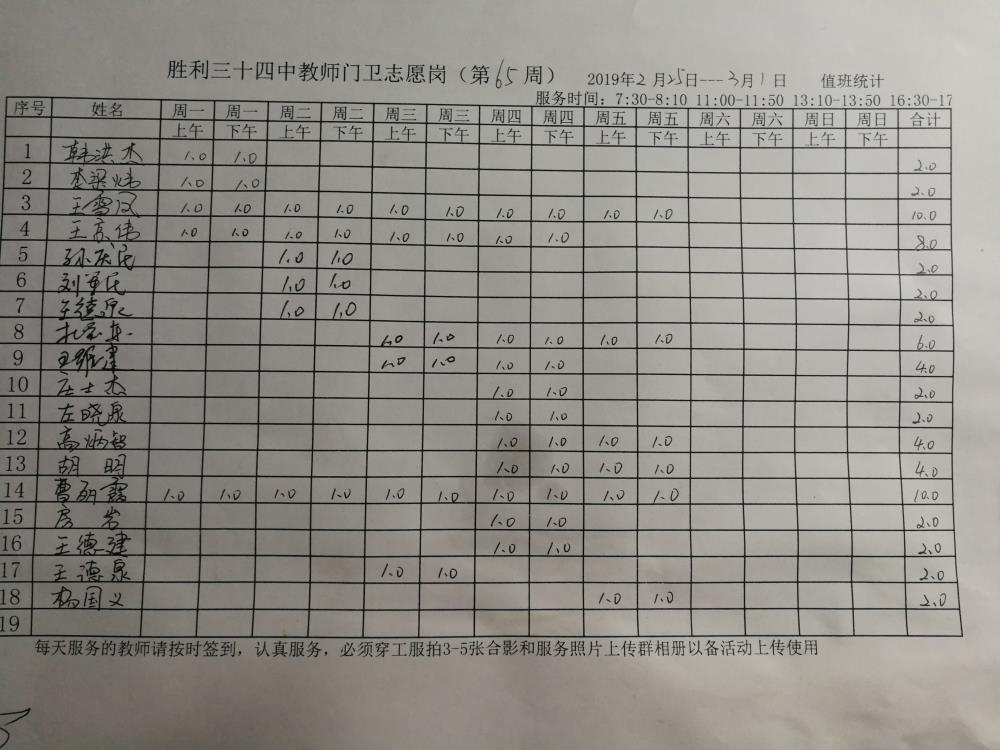 胜利三十四中教师门卫志愿岗（第65周） 2019年2月25日---3月1日 值班统计
服务时间：7:30-8:10 11:00-11:50 13:10-13:50 16:30-17
序号 姓名 周一 周一 周二 周二 周三 周三 周四 周四 周五 周五 周六 周六 周日 周日 合计
上午 下午 上午 下午 上午 下午 上午 下午 上午 下午 上午 下午 上午 下午
1 韩洪杰 1.0 1.0 2.0
2 李梁炜 1.0 1.0 2.0
3 王雪汉 1.0 1.0 1.0 1.0 1.0 1.0 1.0 1.0 1.0 1.0 10.0
4 王京伟 1.0 1.0 1.0 1.0 1.0 1.0 1.0 1.0 8.0
5 孙庆民 1.0 1.0 2.0
6 刘军民 1.0 1.0 2.0
7 王德泉 1.0 1.0 2.0
8 1.0 1.0 1.0 1.0 1.0 1.0 6.0
9 王维建 1.0 1.0 1.0 1.0 4.0
10 庄士杰 1.0 1.0 2.0
11 左晓泉 1.0 1.0 2.0
12 高炳智 1.0 1.0 1.0 1.0 4.0
13 胡明 1.0 1.0 1.0 1.0 4.0
14 曹丽霞 1.0 1.0 1.0 1.0 1.0 1.0 1.0 1.0 1.0 1.0 10.0
15 房岩 1.0 1.0 2.0
16 王德建 1.0 1.0 2.0
17 王德泉 1.0 1.0 2.0
18 杨国义 1.0 1.0 2.0
19
每天服务的教师请按时签到，认真服务，必须穿工服拍3-5张合影和服务照片上传群相册以备活动上传使用